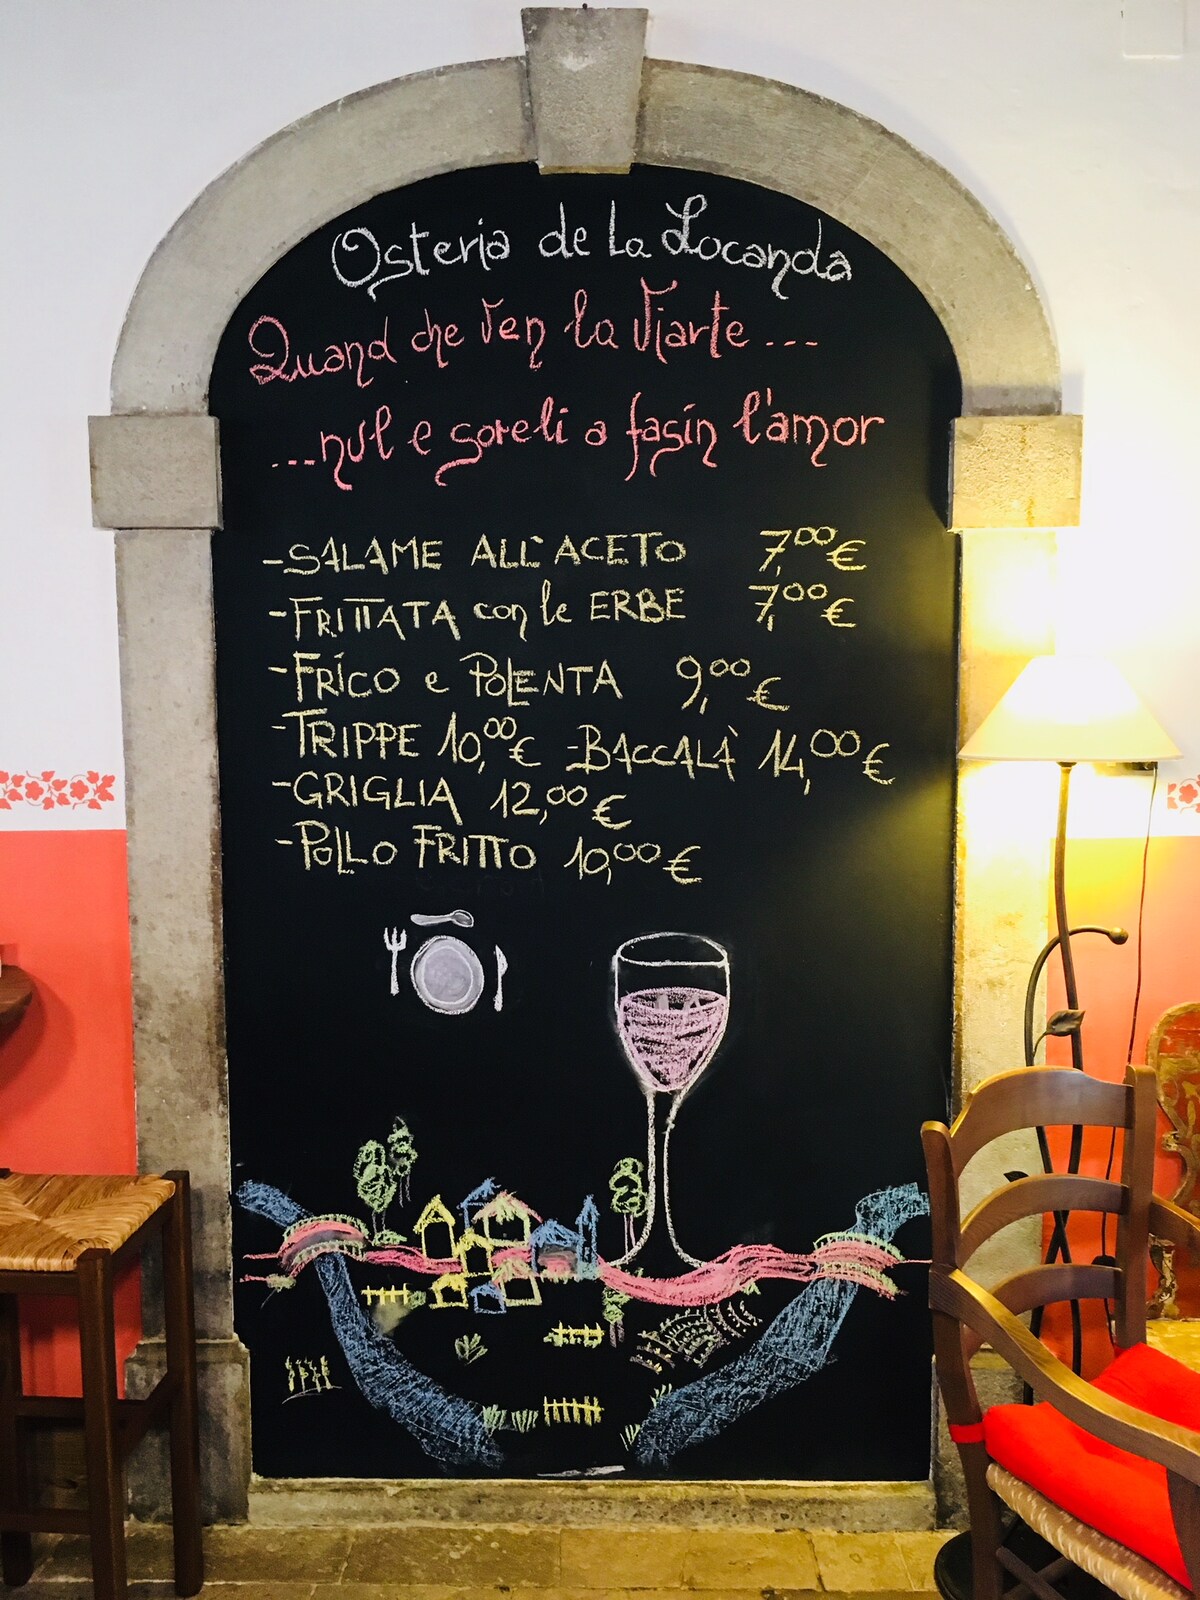 Osteria de La Locanda
Quand che ven la Viarte ...
...nul e soreli a fasin l'amor
-SALAME ALL'ACETO 7,00€
-FRITTATA con le ERBE 7,00€
-FRICO e POLENTA 9,00€
-TRIPPE 10,00€ -BACCALÀ 14,00€
-GRIGLIA 12,00€
-POLLO FRITTO 10,00€